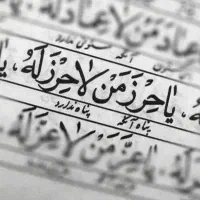 عِمَادَ مَنْ لَا عِمَادَ لَهُ
آنکه ستون ندارد
يَا حِرْزَ مَنْ لَا حِرْزَ لَهُ، يَا
پناه آنکه پناه ندارد
يَا عِزَّ مَنْ لَا عِزَّ لَهُ